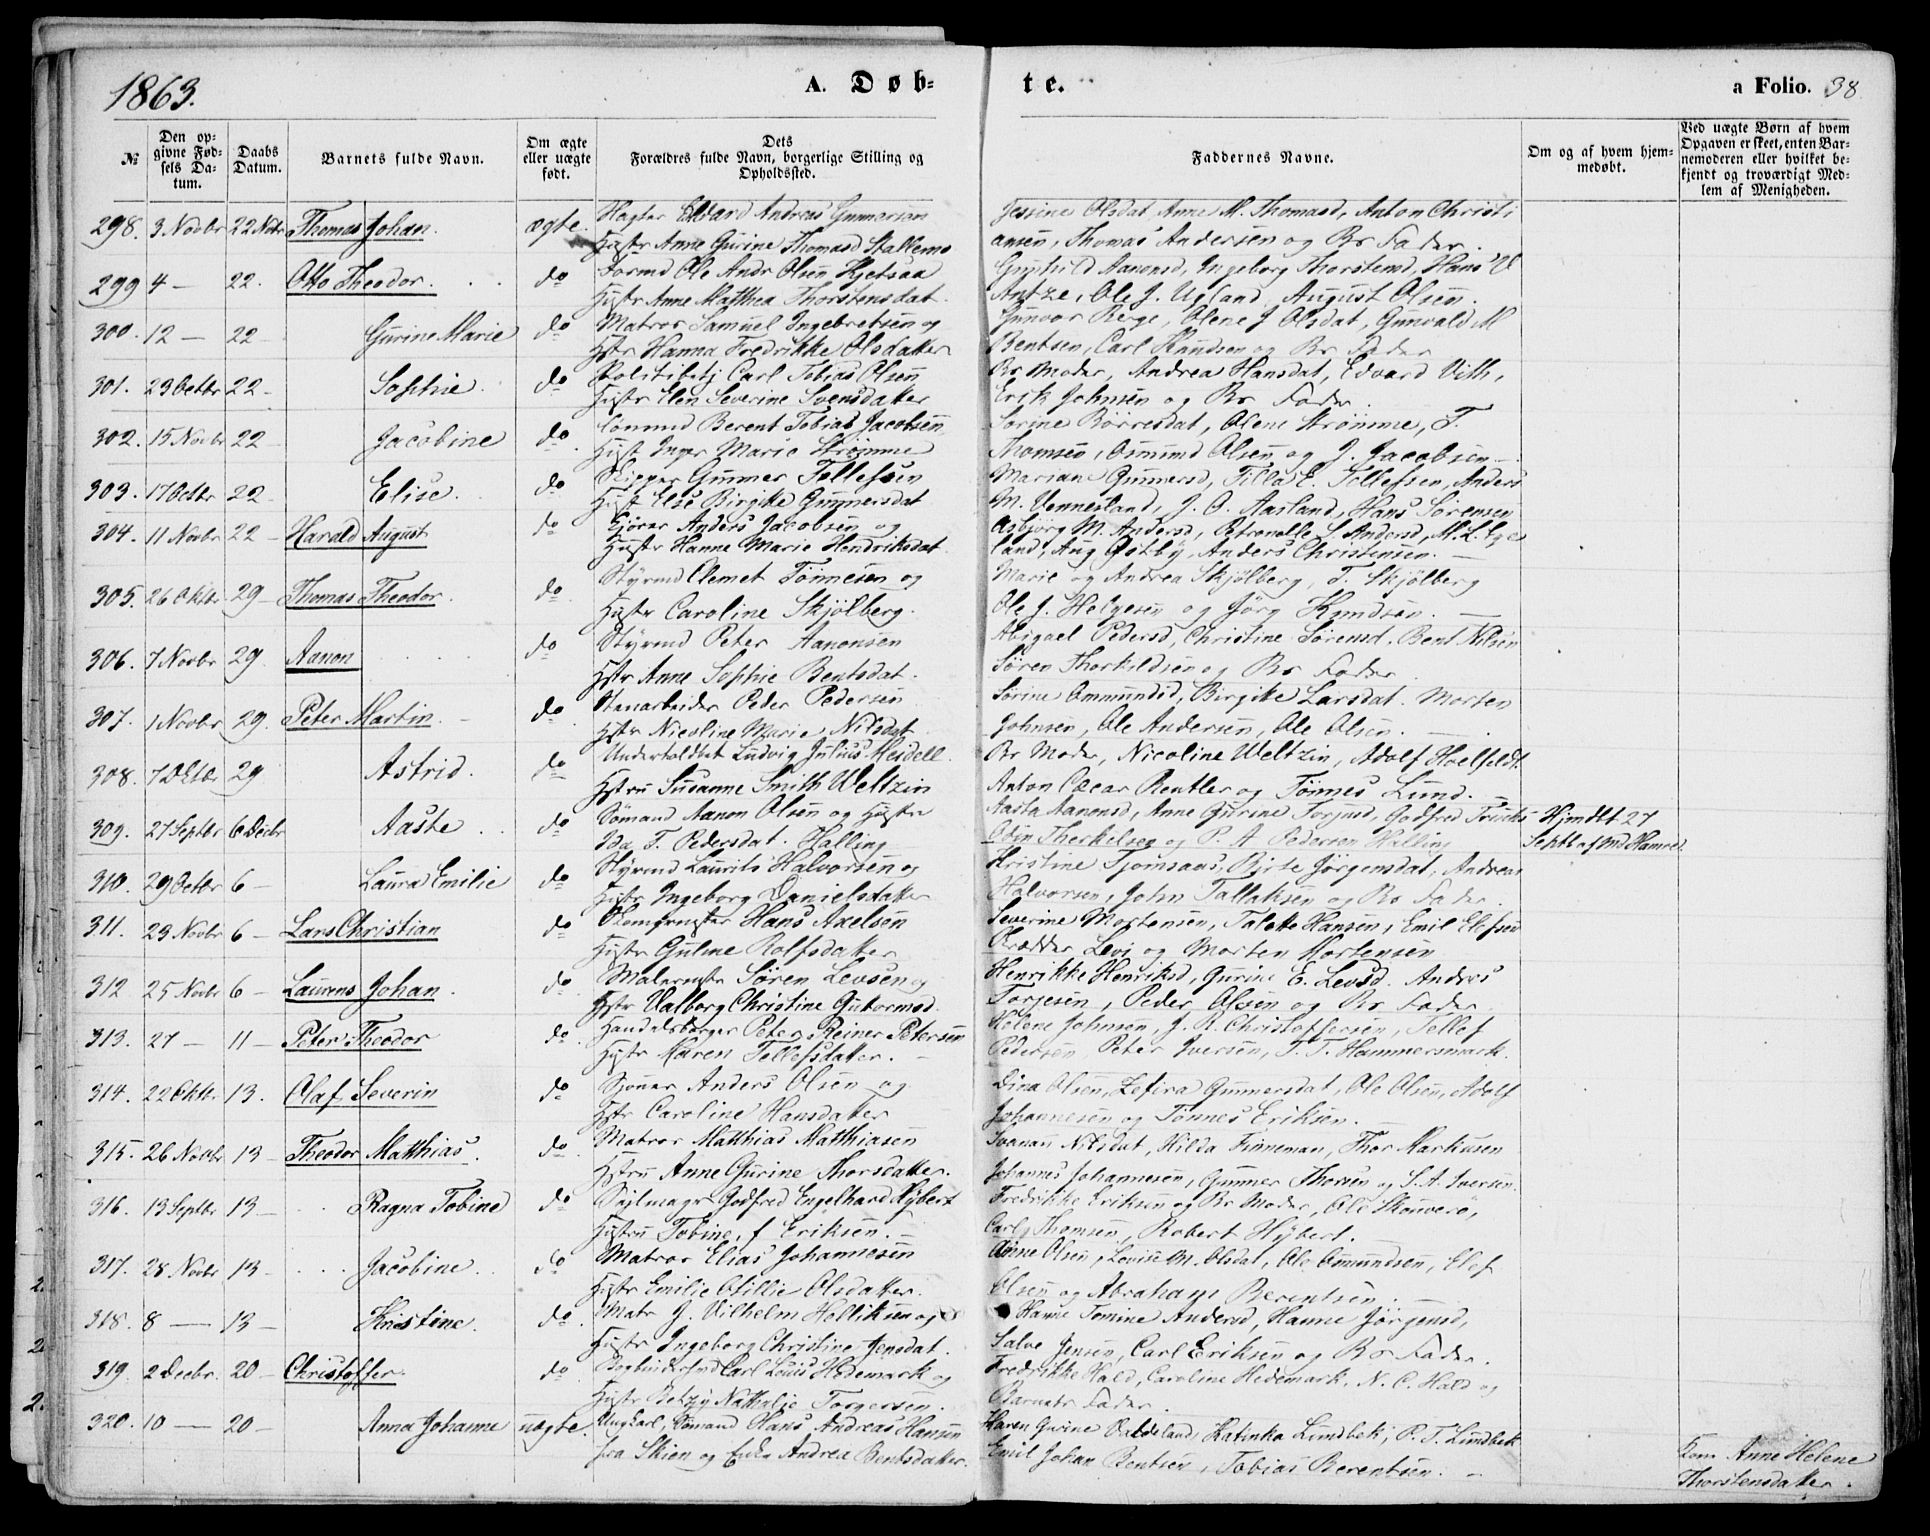 1863.
A. Døb-
te.
a Folio. 38
№
Den op-
givne Fød-
sels Da-
tum.
Daabs
Datum.
Barnets fulde Navn.
Om ægte
eller uægte
født.
Dets
Forældres fulde Navn, borgerlige Stilling og
Opholdssted.
Faddernes Navne.
Om og af hvem hjem-
medøbt.
Ved uægte Børn af hvem
Opgaven er skeet, enten Bar-
nemoderen eller hvilket be-
kjendt og troværdigt Med-
lem af Menigheden.
298. 3 Novbr 22 Novbr Thomas Johan. ægte. Edvard Andreas Gunnarsen
Hustr Anne Gurine Thomasd Stallemo
Jessine Olsdat, Anne M. Thomasd, Anton Christi
ansen, Thomas Andersen og Bs Fader.
299 4 — 22. Otto Theodor. do Formd Ole Andr Olsen Kjetsaa
Hustr Anne Matthea Thorstensdat.
Gunhild Aanonsd, Ingeborg Thorstensd, Hans
Ole J. Ugland, August Olsen.
300. 12 — 22 — Gurine Marie do Matros Samuel Ingebretsen og
Hstr Hanna Fredrikke Olsdatter
Gunvor Berge, Olene J Olsdat, Gunvald M
Bentsen, Carl Knudsen og Bs Fader
301. 23 Octbr 22 — Sophie. do Politibetj Carl Tobias Olsen
Hustr Elen Severine Svensdatter
Bs Moder, Andrea Hansdat, Edvard Vith,
Erik Johnsen og Bs Fader.
302. 15 Novbr 22 Jacobine do Berent Tobias Jacobsen
Hust Inger Marie Strømme
Sorine Børresdat, Olene Strømme, T.
Thomsen, Osmund Olsen og J. Jacobsen —
303. 17 Octbr 22 Elise. do Skipper Gunner Tellefsen
Hust Else Birgitte Gunnersdat
Mariane Gunnersd, Tilla E. Tellefsen, Anders
M. Vennesland, J. O. Aasland, Hans Sørensen
304. 11 Novbr 22 — Harald August do Anders Jacobsen og
Hustr Hanne Marie Hendriksdat
Asbjørg M. Andersd, Petronelle S Andersd, M. L.
land, Aug Østby, Anders Christensen. —
305. 26 Oktbr 29 — Thomas Theodor. do Styrmd Clemet Tønnesen og
Hustr Caroline Skjølberg.
Marie og Andrea Skjølberg, T. Skjølberg
Ole J. Helgesen og Jörg Knudsen. —
306. 7 Novbr 29. Aanon do Styrmd Peter Aanonsen
Hstr Anne Sophie Bentsdat.
Abigael Pedersd, Christine Sørensd, Bent Nilsen
Søren Thorkildsen og Bs Fader
307. 1 Novbr 29. Peter Martin. — do Stenarbeider Peder Pedersen
Hstr Nicoline Marie Nilsdat
Sorine Ommundsd, Birgitte Larsdat. Morten
Johnsen, Ole Andersen, Ole Olsen. —
308. 7 Oktbr 29 Astrid. do Undertoldbet Ludvig Julius Heidell.
Hstru Susanne Smith Weltzin
Bs Moder, Nicoline Weltzin, Adolf Hoelfeldt.
Anton Cæsar Rentler og Tønnes Lund. —
309. 27 Septbr 6 Decbr Aaste. do Sömand Aanon Olsen og Hustr
Ida T. Pedersdat. Halling
Aasta Aanonsd, Anne Gurine Torjusd, Godfred
Odin Therkelsen og P. A Pedersen Halling
Hjmdbt 27
Septb af Md
310. 29 Octbr 6 — Laura Emilie do Styrmd Laurits Halvorsen og
Hustr Ingeborg Danielsdatter
Kristine Tjomsaas, Birte Jörgensdat, Andreas
Halvorsen, John Tallaksen og Bs Fader.
311. 23 Novbr 6 — Lars Christian do Hans Axelsen
Hustr Guline Rolfsdatter
Severine Mortensen, Talette Hansen, Emil Elefsen
Skrædder Levi og Morten Mortensen
312 25 Novbr 6 — Laurens Johan. do Malermstr Søren Levsen og
Hstr Valborg Christine Guttormsd.
Henrikke Henriksd, Gurine E. Levsd. Anders
Torjesen, Peder Olsen og Bs Fader
313. 27 — 11 — Peter Theodor do Handelsborger Peter Reiner Petersen
Hustr Maren Tellefsdatter. —
Helene Johnsen, J. R. Christoffersen, Tellef
Pedersen, Peter Iversen, T. T. Hammersmark.
314. 22 Oktbr 13. Olaf Severin do Anders Olsen og
Hstr Caroline Hansdatter
Dina Olsen, Zefira Gunnersdat, Ole Olsen, Adolf
Johannesen og Tønnes Eriksen. —
315. 26 Novbr 13 — Theodor Matthias. do Matros Matthias Matthiasen
Hstru Anne Gurine Thorsdatter.
Svanau Nilsdat, Hilda Finneman, Thor Markusen
Johannes Johannesen, Gunner Thorsen og S. A. Iversen.
316. 13 Septbr 13 — Ragna Tobine do Seilmagr Godfred Engelhard Hybert
Hustru Tobine, f Eriksen. —
Fredrikke Eriksen og Bs Moder, Ole Skouverö,
Carl Thomsen, Robert Hybert. —
317. 28 Novbr 13 — Jacobine. do Matros Elias Johannesen
Hustr Emilie Otillie Olsdatter.
Anne Olsen, Lovise M. Olsdat, Ole Omundsen, Elef
Olsen og Abraham Berentsen. —
318. 8 — 13 — Kristine. do. Matr J. Vilhelm Holliksen og
Hustr Ingeborg Christine Jensdat.
Hanne Tomine Andersd, Hanne Jørgensd,
Salve Jensen, Carl Eriksen og Bs Fader.
319. 2 Decbr. 20 — Christoffer. do Carl Louis Hedemark og
Hustr Betzy Nathalie Torgersen.
Fredrikke Hald, Caroline Hedemark, N. C. Hald og
Barnets Fader.
320. 10 — 20 — Anna Johanne uægte. Ungkarl, Sömand Hans Andreas Hansen
fra Skien og Enke Andrea Bentsdatter.
Karen Gurine Katinka Lundbek, P. T. Lundbek
Emil Johan Bentsen, Tobias Berentsen. —
Kone Anne Helene
Thorstensdatter.